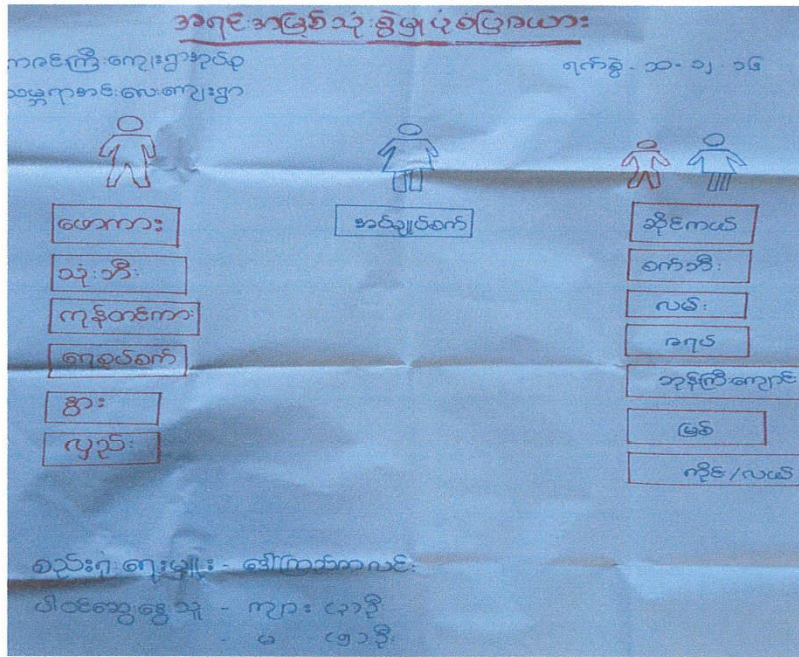 အရင်းအမြစ်သုံးစွဲမှုပုံစံပြဇယား
ကဇင်ကြီးကျေးရွာအုပ်စု
သမ္ဘရာအင်းလေးကျေးရွာ
ရက်စွဲ - ၁၁-၁၂-၁၆
ဖောကား
သုံးဘီး
ကုန်တင်ကား
ရေစုပ်စက်
နွား
လှည်း
အပ်ချုပ်စက်
ဆိုင်ကယ်
စက်ဘီး
လမ်း
ဇရပ်
ဘုန်းကြီးကျောင်း
မြစ်
ကိုင်း/လယ်
စည်းရုံးရေးမှူး - ဒေါ်ကြည်ကလင်း
ပါဝင်ဆွေးနွေးသူ - ကျား (၃) ဦး
- မ (၅) ဦး